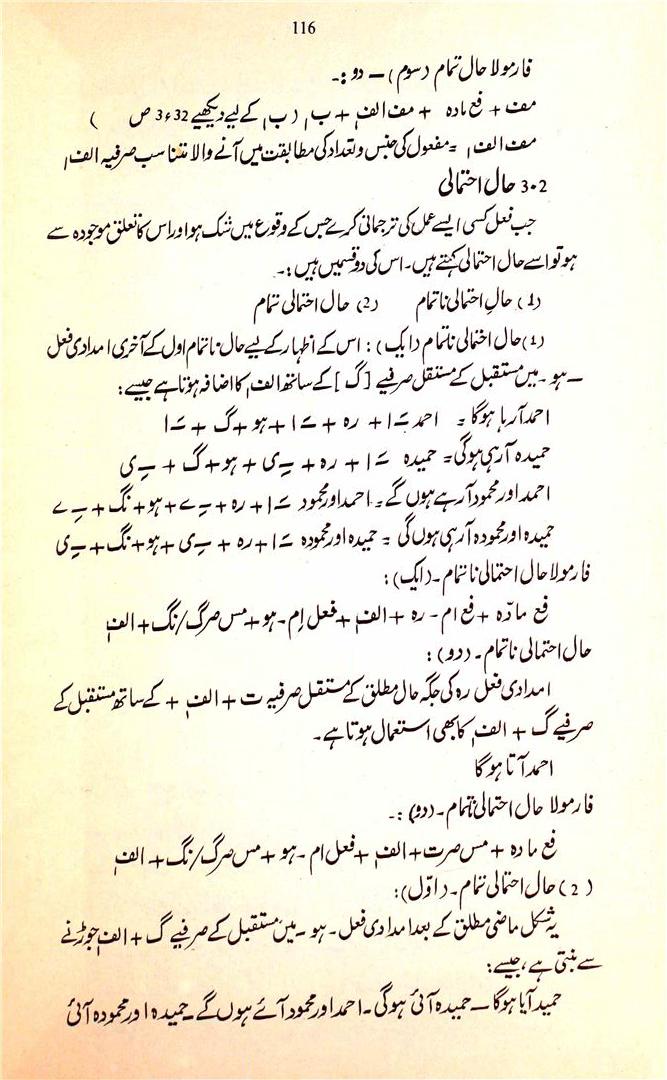 116
فارمولا حال تمام (سوم) — دو :۔
مف + فع مادہ + مف الف + ب۱ (ب۱ کے لیے دیکھیے 32ء3 ص )
مف الف۱ = مفعول کی جنس و تعداد کی مطابقت میں آنے والا متناسب صرفیہ الف۱
3۰2 حال احتمالی
جب فعل کسی ایسے عمل کی ترجمانی کرے جس کے وقوع میں شک ہو اور اس کا تعلق موجودہ سے
ہو تو اسے حال احتمالی کہتے ہیں۔ اس کی دو قسمیں ہیں :۔
(1) حالِ احتمالی ناتمام (2) حال احتمالی تمام
(1) حال احتمالی ناتمام (ایک) : اس کے اظہار کے لیے حال ناتمام اول کے آخری امدادی فعل
– ہو ۔ میں مستقبل کے مستقل صرفیے [گ] کے ساتھ الف۱ کا اضافہ ہوتا ہے جیسے :
احمد آ رہا ہوگا = احمد ــَا + رہ + ــَا + ہو + گ + ــَا
حمیدہ آ رہی ہوگی = حمیدہ ــَا + رہ + ــِی + ہو + گ + ــِی
احمد اور محمود آ رہے ہوں گے = احمد اور محمود ــَا + رہ + ــِے + ہو + نگ + ــِے
حمیدہ اور محمودہ آ رہی ہوں گی = حمیدہ اور محمودہ ــَا + رہ + ــِی + ہو + نگ + ــِی
فارمولا حال احتمالی ناتمام ۔ (ایک) :
فع مادّہ + فع ام ۔ رہ + الف۱ + فعل اِم ۔ ہو + مس صر گ/نگ + الف۱
حال احتمالی ناتمام ۔ (دو) :
امدادی فعل رہ کی جگہ حال مطلق کے مستقل صرفیہ ت + الف۱ + کے ساتھ مستقبل کے
صرفیے گ + الف۱ کا بھی استعمال ہوتا ہے ۔
احمد آتا ہوگا
فارمولا حال احتمالی ناتمام ۔ (دو) :۔
فع مادہ + مس صرت + الف۱ + فعل ام ۔ ہو + مس صر گ/نگ + الف۱
(2) حال احتمالی تمام ۔ (اوّل) :
یہ شکل ماضی مطلق کے بعد امدادی فعل ۔ ہو ۔ میں مستقبل کے صرفیے گ + الف۱ جوڑنے
سے بنتی ہے ، جیسے :
حمید آیا ہوگا — حمیدہ آئی ہوگی ۔ احمد اور محمود آئے ہوں گے ۔ حمیدہ اور محمودہ آئی